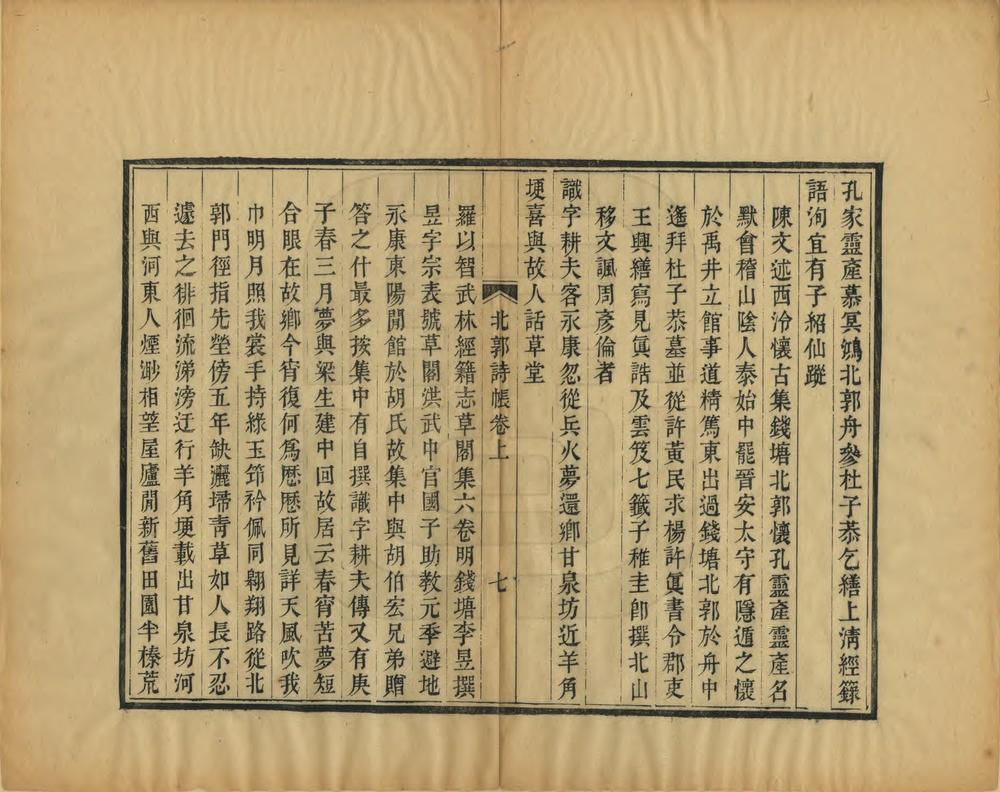 孔家靈產慕冥鴻北郭舟參杜子恭乞繕上淸經籙
語洵宜有子紹仙蹤
陳文述西泠懷古集錢塘北郭懷孔靈產靈產名
默會稽山陰人泰始中罷晉安太守有隱遁之懷
於禹井立館事道精篤東出過錢塘北郭於舟中
遙拜杜子恭墓並從許黃民求楊許眞書令郡吏
王興繕寫見眞誥及雲笈七籤子稚圭卽撰北山
移文諷周彥倫者
識字耕夫客永康忽從兵火夢還鄉甘泉坊近羊角
埂喜與故人話草堂
北郭詩帳卷上
七
羅以智武林經籍志草閣集六卷明錢塘李昱撰
昱字宗表號草閣洪武中官國子助教元季避地
永康東陽閒館於胡氏故集中與胡伯宏兄弟贈
答之什最多按集中有自撰識字耕夫傳又有庚
子春三月夢與梁生建中回故居云春宵苦夢短
合眼在故鄉今宵復何爲歷歷所見詳天風吹我
巾明月照我裳手持綠玉筇衿佩同翱翔路從北
郭門徑指先塋傍五年缺灑埽靑草如人長不忍
遽去之徘徊流涕滂迂行羊角埂載出甘泉坊河
西與河東人煙渺相望屋廬閒新舊田園半榛荒